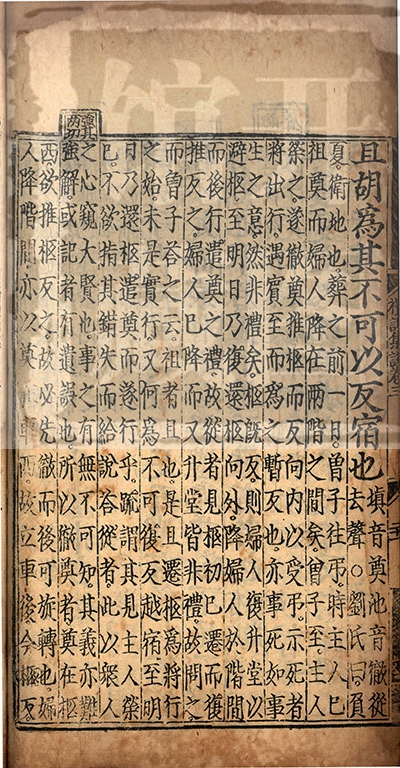 且胡爲其不可以反宿也
填音奠池音徹從
去聲○劉氏曰負
夏衛地也葬之前一日曾子往弔時主人已
祖奠而婦人降在兩階之間矣曾子至主人
榮之遂徹奠推柩而反向內以受弔示死者
將出行遇賓至而爲之暫反也亦事死如事
生之意然非禮矣柩旣反則婦人復升堂以
避柩至明日乃復還柩向外降婦人於階間
而後行遣奠之禮故從者見柩初已遷而復
推反之婦人已降而又升堂皆非禮故問之
而曾子荅之云祖者且也是且遷柩爲將行
之始未是實行又何爲不可復反越宿至明
日乃還柩遣奠而遂行乎䟽謂其見主人榮
己不欲指其錯失而給說答從者此以衆人
之心窺大賢也事之有無不可知其義亦難
強解或記者有遺誤也所以徹奠者奠在柩
西欲推柩反之故必先徹而後可旋轉也婦
人降階間亦以奠車西故立車後今柩反